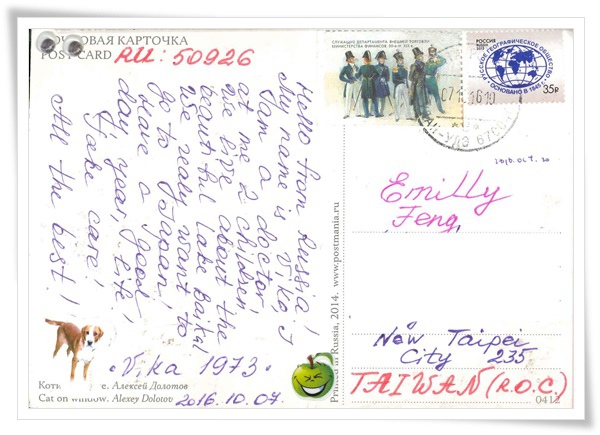 ПОЧТОВАЯ КАРТОЧКА
POSTCARD RU: 50926
Hello from Russia!
My name is Vika, I
am a doctor,
at me 2 children,
we live about the
beautiful lake Baikal
we realy want to
Go to Japan!
Have a good
day, year, life!
Take care!
All the best!
•Vika 1973•
Алексей Долотов
Cat on window. Alexey Dolotov
2016.10.07.
СЛУЖАЩИЕ ДЕПАРТАМЕНТА ВНЕШНЕЙ ТОРГОВЛИ
МИНИСТЕРСТВА ФИНАНСОВ
РОССИЯ
RUSSIA
РУССКОЕ ГЕОГРАФИЧЕСКОЕ ОБЩЕСТВО
• ОСНОВАНО В 1845 Г. •
35р
16
УЛЭ
Emilly
Feng
New Taipei
City 235
TAIWAN (R.O.C)
Printed in Russia, 2014. www.postmania.ru
0412